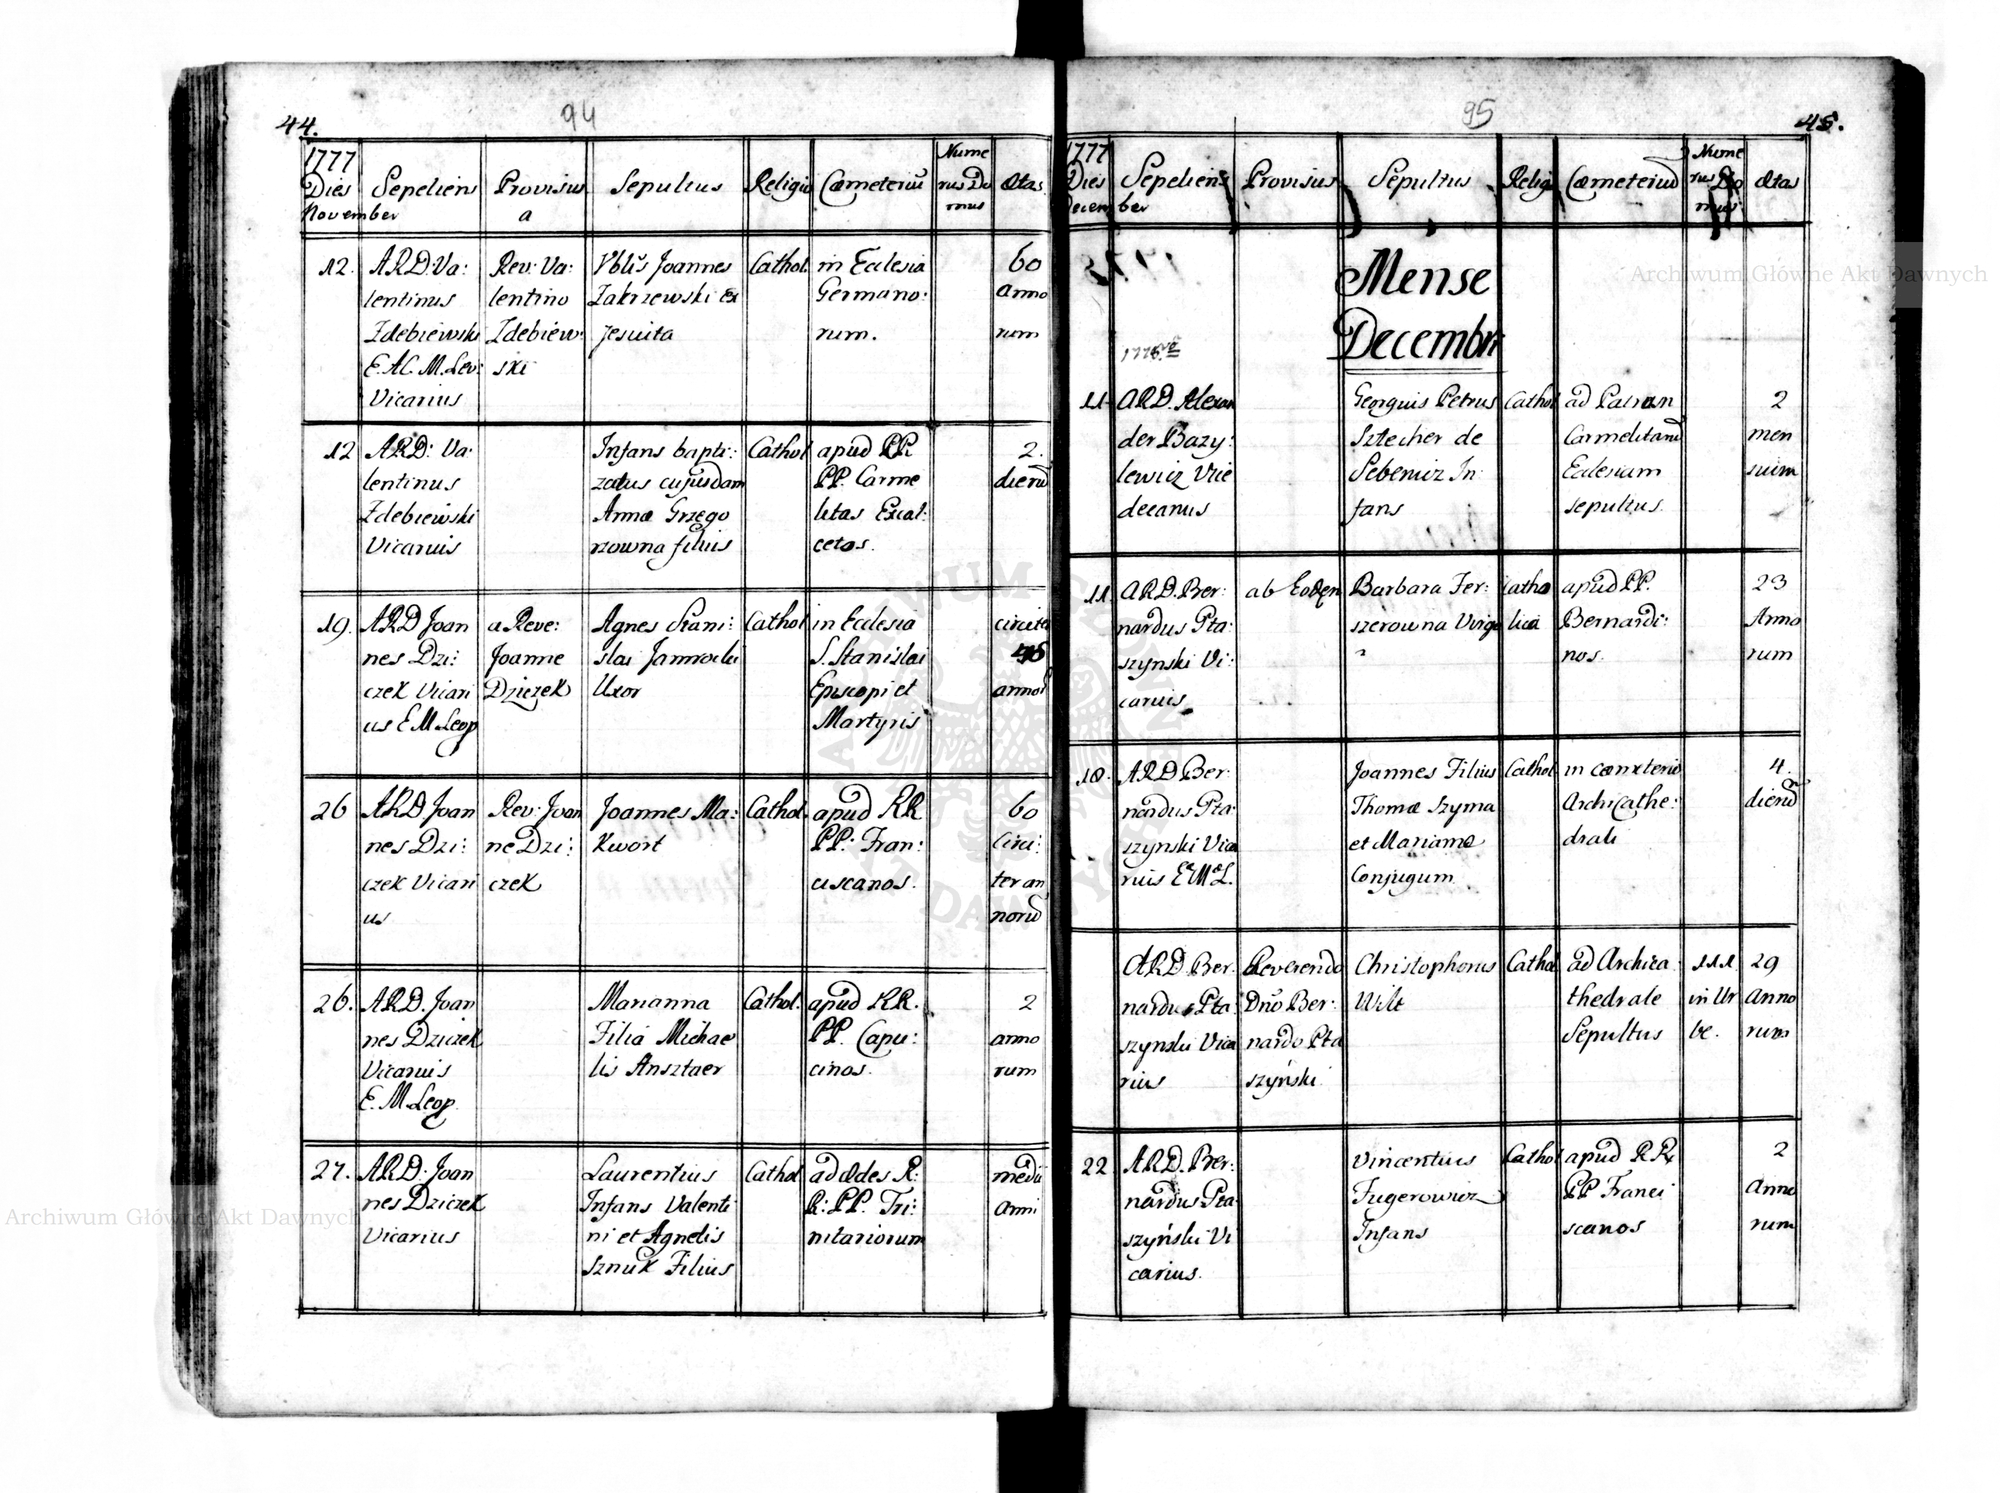 44.
94
1777
Dies
November
Sepeliens
Provisus
a
Sepultus
Religio
Cæmeteriũ
Nume
rus Do
mus
Ætas
12.
A.R.D: Va:
lentinus
Zdebiewski
E. A.C. M. Lev:
Vicarius
Rev: Va:
lentino
Zdebiew:
ski
Zakrzewski ex
Jesuita
Cathol:
in Ecclesia
Germano:
rum.
60
Anno
rum
12
A.R.D: Va:
lentinus
Zdebiewski
Vicarius
Infans bapti:
zatus cujusdam
Annæ Grzego
rzowna filius
Cathol
apud RR
PP. Carme
litas Excal:
ceatos.
2.
dierũ
19.
A.R.D Joan
nes Dzi:
czek Vicari
us E M Leop
a Reve:
Joanne
Dziczek
Agnes Stani:
slai
Uxor
Cathol
in Ecclesia
S. Stanislai
Episcopi et
Martyris
circite
annor
26
A.R.D. Joan
nes Dzi:
czek Vicari
us
Rev: Joan
ne Dzi:
czek
Joannes Ma:
kwort
Cathol.
apud RR
PP: Fran:
ciscanos.
60
Circi:
ter an
norũ
26.
A.R.D. Joan
nes Dziczek
Vicarius
E. M Leop.
Marianna
Filia Michae
lis Ansztaer
Cathol.
apud RR.
PP. Capu:
cinos.
2
anno
rum
27.
A.R.D: Joan
nes Dziczek
Vicarius
Laurentius
Infans Valenti
ni et Agnetis
Sznuk Filius
Cathol
ad ædes R:
R: PP. Tri:
nitariorum
medii
Anni
95
45.
1777
Dies
Decem ber
Sepeliens
Provisus
Sepultus
Religi
Cæmeteriũ
Nume
rus Do
mus
Ætas
Mense
Decembri
11
A.R.D. Alexan
der Bazy:
lewicz Vice
decanus
Georgius Petrus
Sztecher de
Sebeniz In
fans
Cathol
ad Patrum
Carmelitarũ
Eclesiam
sepultus.
2
men
sium
11.
A.R.D. Ber:
nardus Pta:
szynski Vi:
carius
ab Eodem
Barbara Fer:
szerowna Virgo
Catho
lica
apud PP.
Bernardi:
nos.
23
Anno
rum
18.
A.R.D Ber:
nardus Pta:
szynski Vica
rius E M L.
Joannes Filius
Thomæ Szyma
et Mariannæ
Conjugum
Cathol
in cæmeterio
ArchiCathe:
drali
4.
dierũ
A.R.D. Ber.
nardus Pta:
szynski Vica
rius
Reverendo
Dno Ber:
nardo Pta
szyński
Christophorus
Wilt
Cathol
ad Archica
thedrale
Sepultus
111
in Ur
be.
29
Anno
rum
22
A.R.D. Ber:
nardus Pta
szyński Vi
carius.
Vincentius
Fugerowicz
Infans
Cathol
apud RR
PP Franci
scanos
2
Anno
rum
Archiwum Główne Akt Dawnych
Archiwum Główne Akt Dawnych